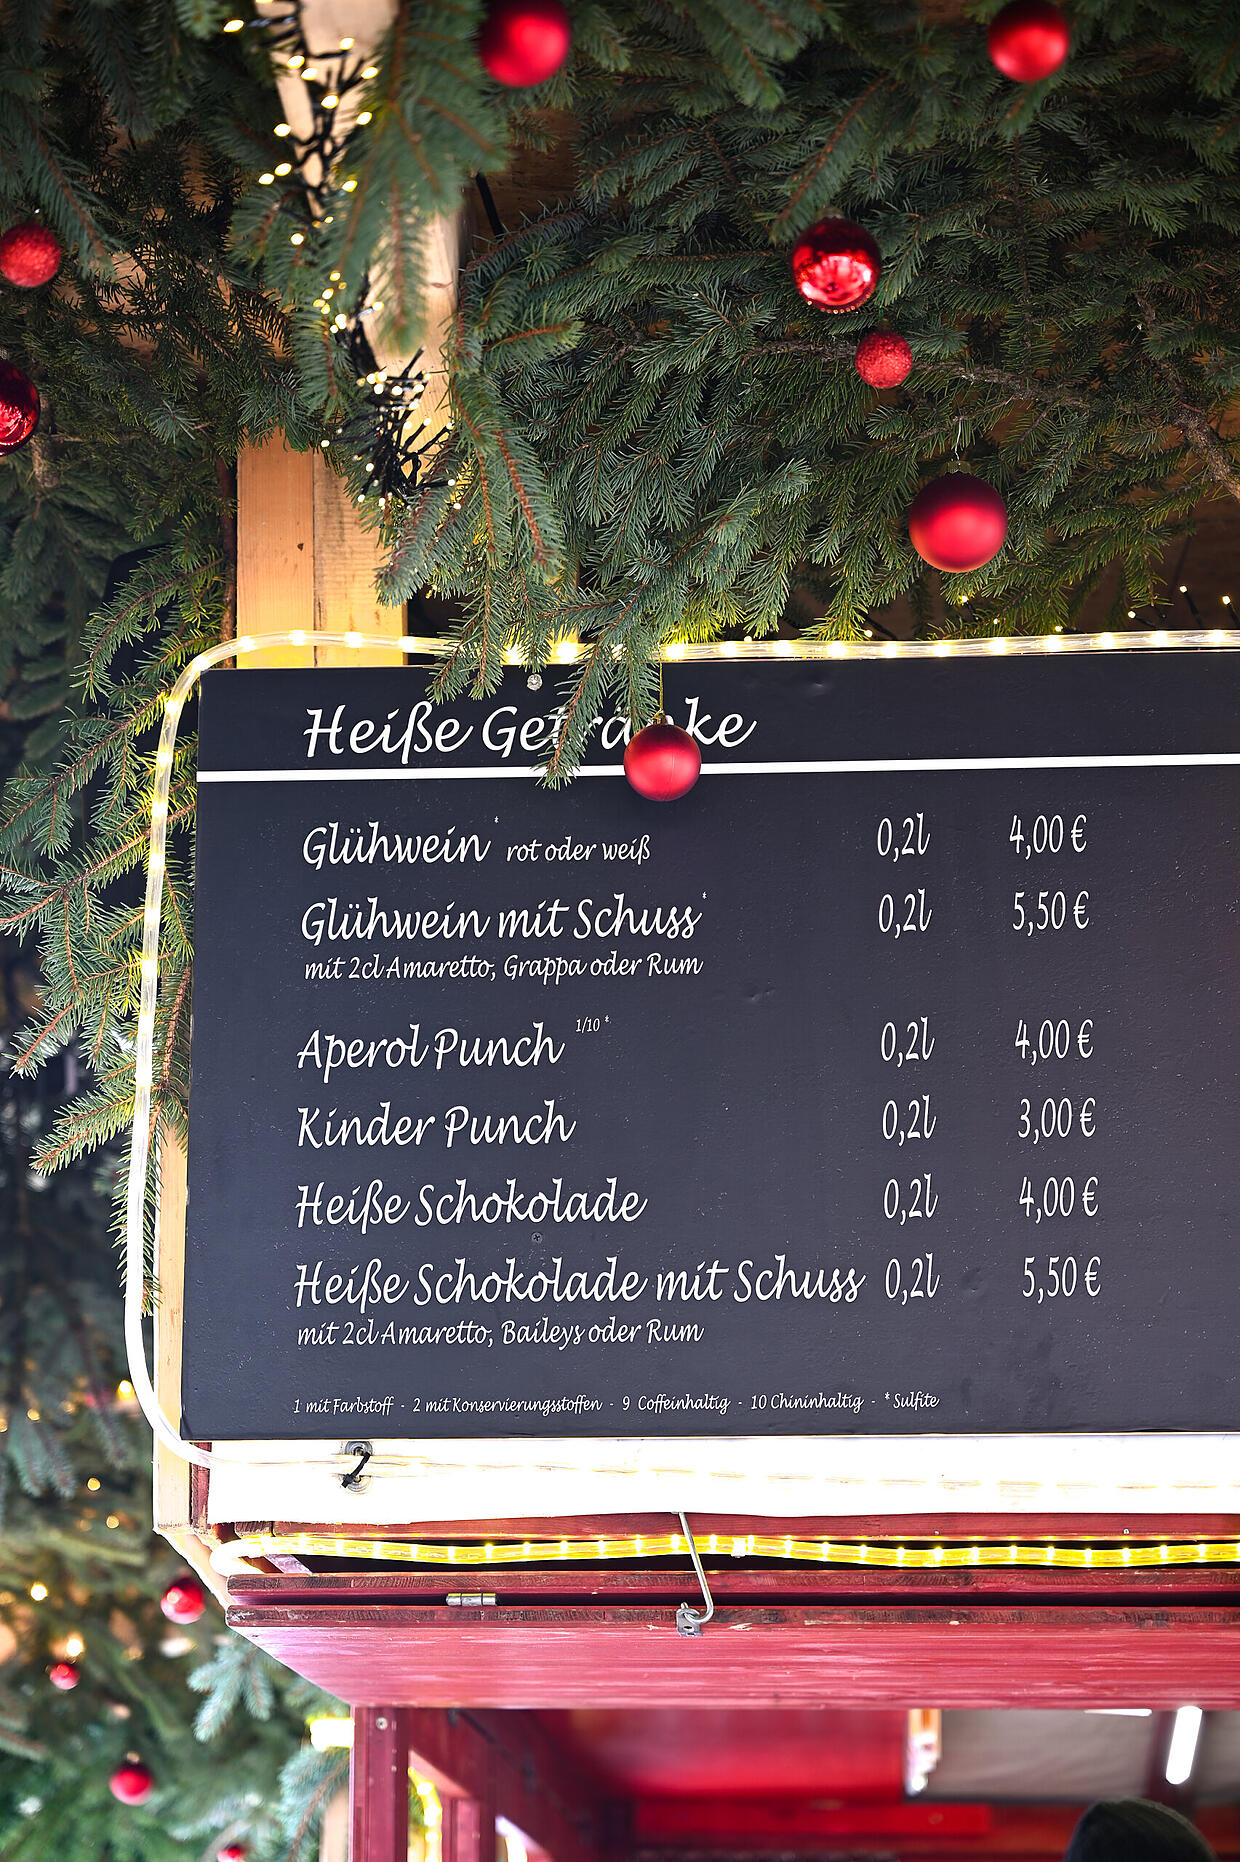 Heiße Getränke
Glühwein* rot oder weiß 0,2l 4,00 €
Glühwein mit Schuss* 0,2l 5,50 €
mit 2cl Amaretto, Grappa oder Rum
Aperol Punch 1/10 * 0,2l 4,00 €
Kinder Punch 0,2l 3,00 €
Heiße Schokolade 0,2l 4,00 €
Heiße Schokolade mit Schuss 0,2l 5,50 €
mit 2cl Amaretto, Baileys oder Rum
1 mit Farbstoff - 2 mit Konservierungsstoffen - 9 Coffeinhaltig - 10 Chininhaltig - * Sulfite